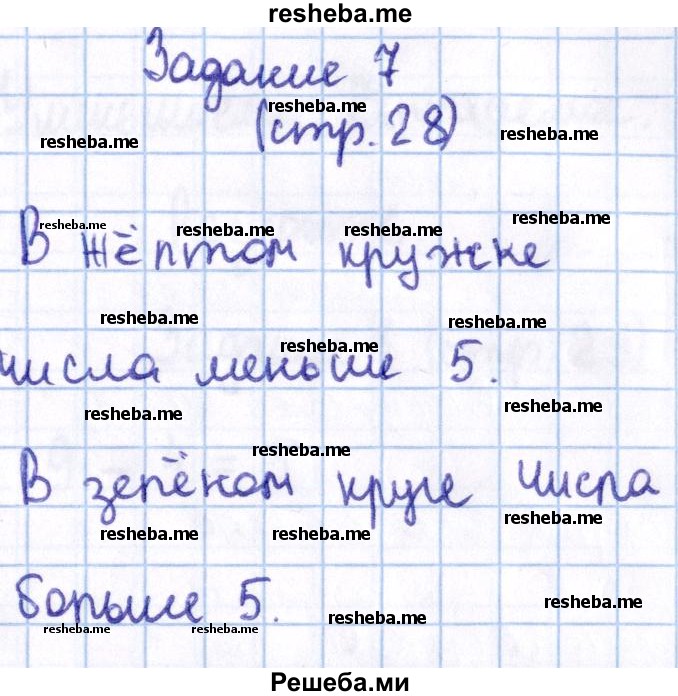 resheba.me
Задание 7
resheba.me
(стр. 28)
resheba.me resheba.me
resheba.me resheba.me resheba.me resheba.me
В жёлтом кружке
resheba.me resheba.me resheba.me
числа меньше 5.
resheba.me resheba.me
resheba.me
В зелёном круге числа
resheba.me resheba.me resheba.me
больше 5.
resheba.me resheba.me resheba.me resheba.me
Решеба.ми